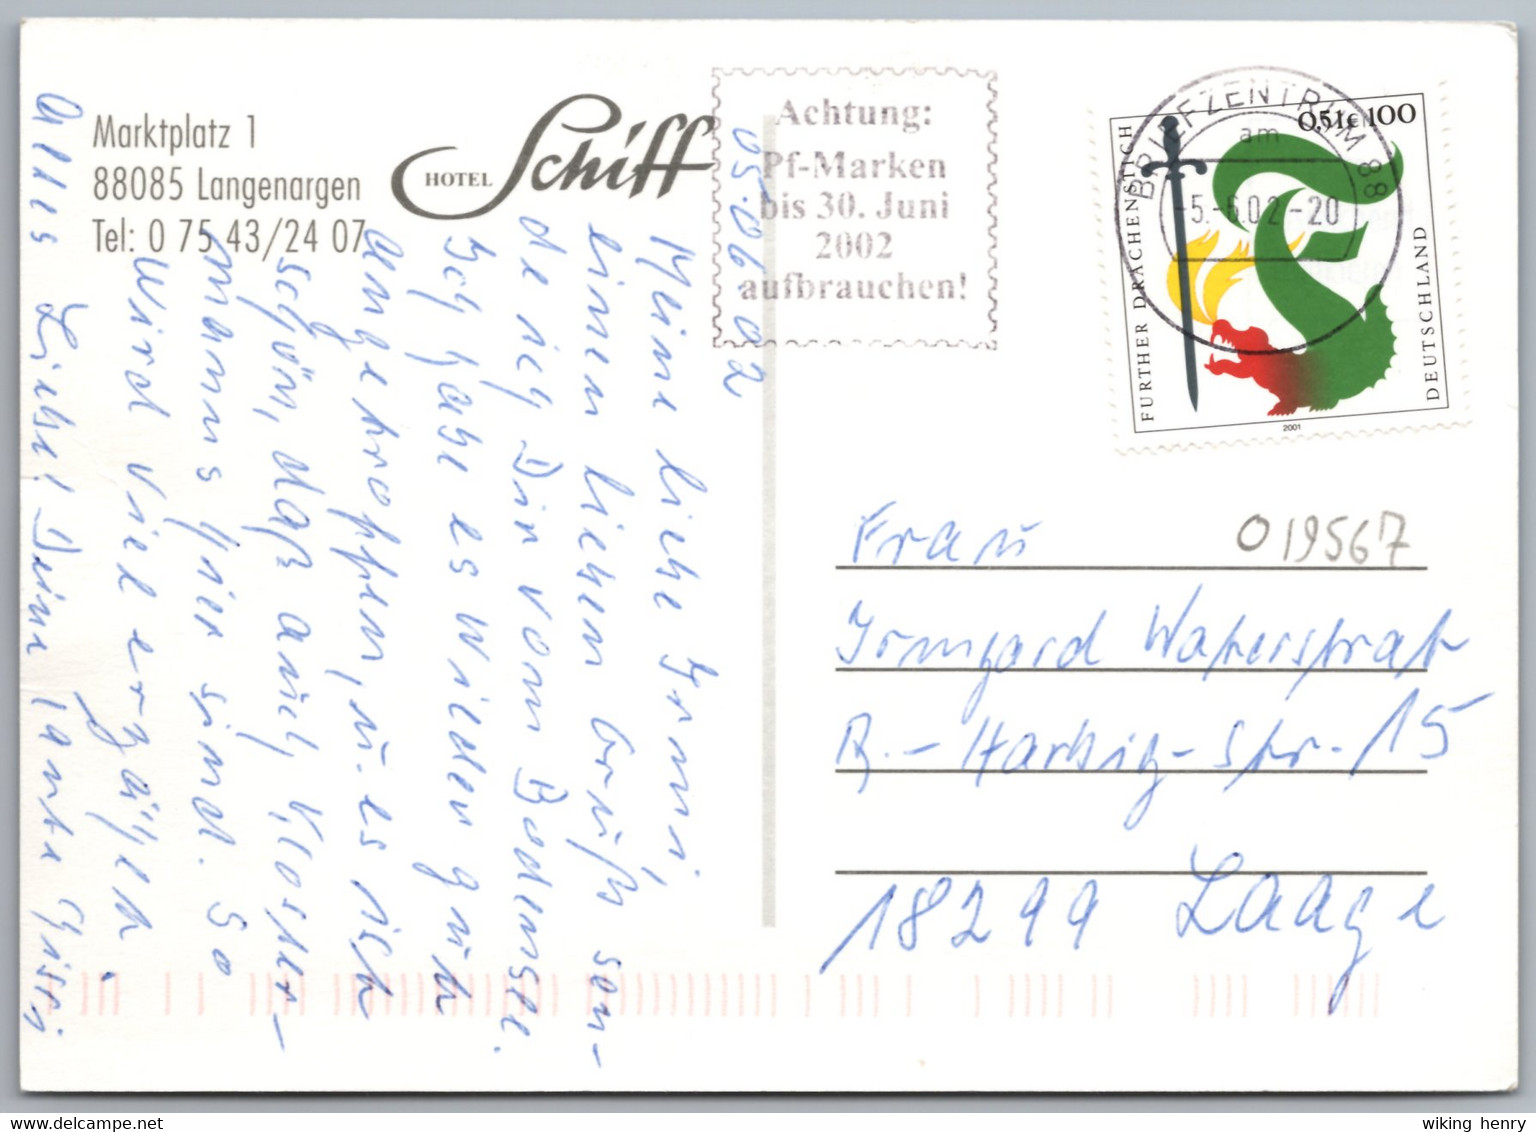 Marktplatz 1
88085 Langenargen
Tel: 0 75 43/24 07
HOTEL Schiff
Achtung:
Pf-Marken
bis 30. Juni
2002
aufbrauchen!
BRIEFZENTRUM 88
am
-5.-6.02-20
0,51€ 100
FURTHER DRACHENSTICH
DEUTSCHLAND
2001
05.06.02
Meine liebe Irmi,
einen lieben Gruß sen-
de ich Dir vom Bodensee.
Ich habe es wieder gut
angetroffen, u. es ist
schön, daß auch Kloster-
manns hier sind. So
wird viel erzählt.
Alles Liebe! Deine Tante Gissi
Frau
019567
Irmgard Waterstrat
R.-Harbig-Str. 15
18299 Laage
wiking henry